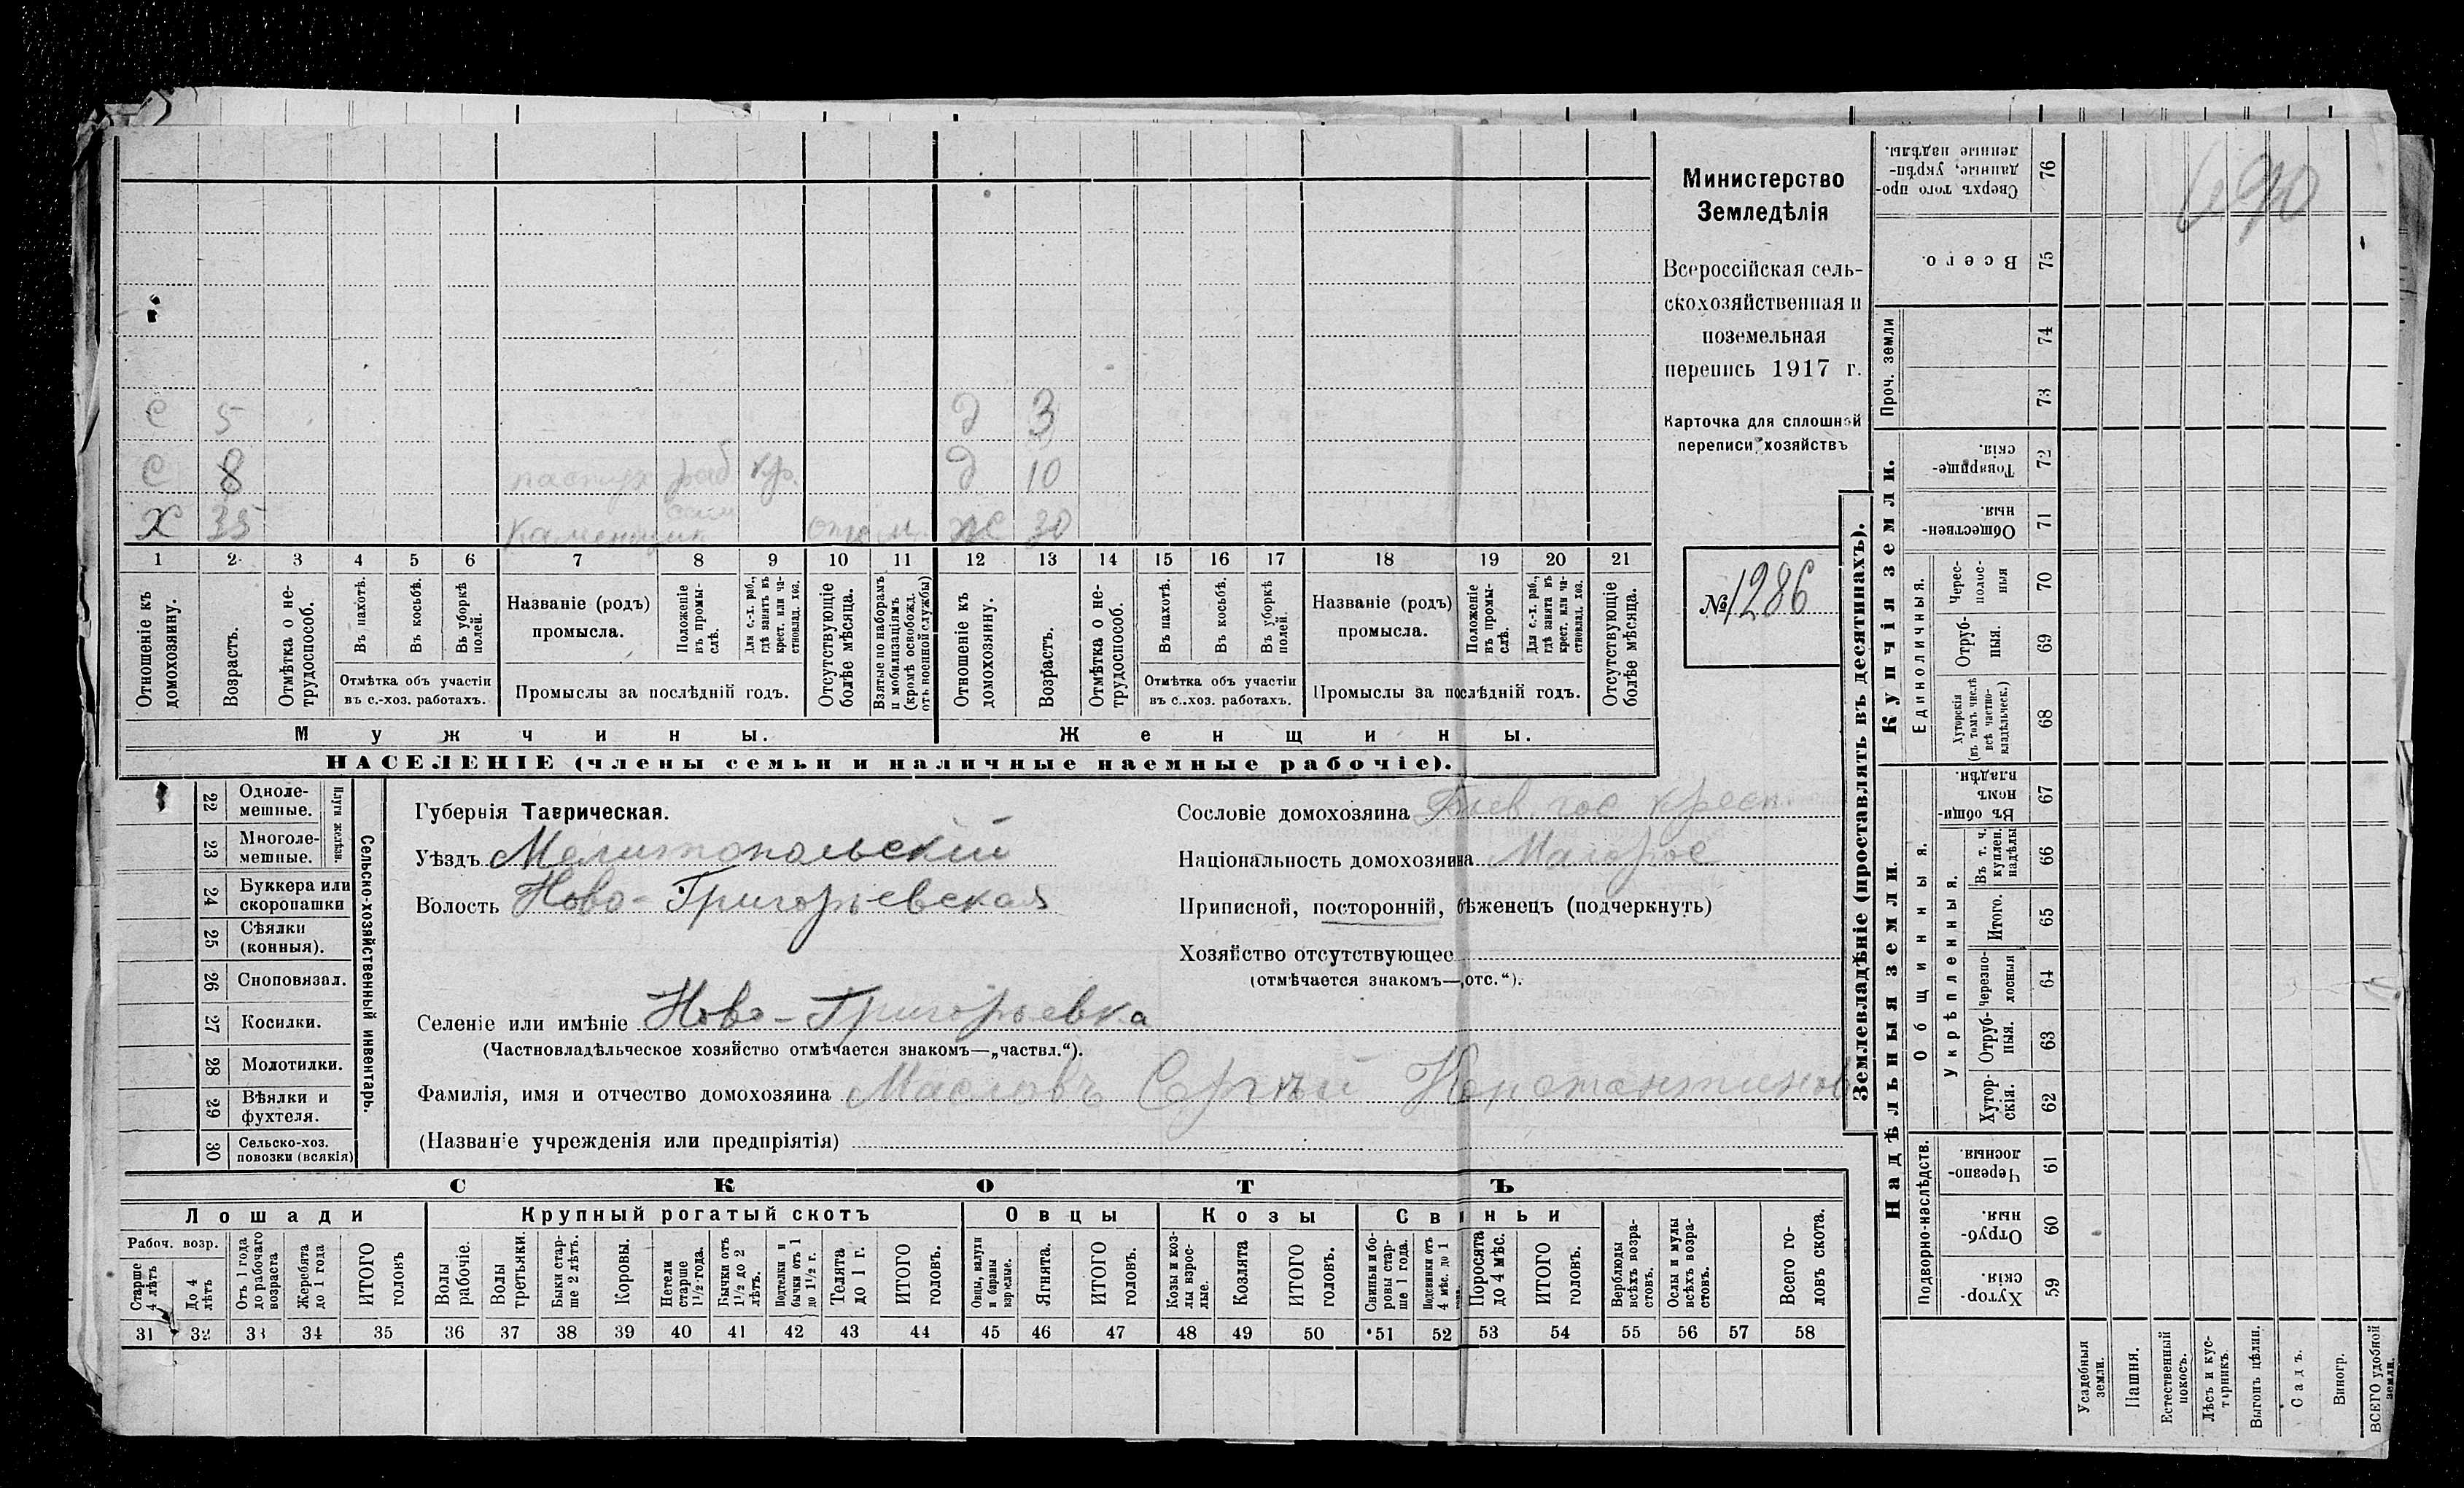 Министерство
Земледѣлія
Всероссійская сель-
скохозяйственная и
поземельная
перепись 1917 г.
Карточка для сплошной
переписи хозяйствъ
№ 1286
690
С 5 д 3
С 8 пастух раб кр. д 10
Х 35 каменщик отс м ж 30
1 2 3 4 5 6 7 8 9 10 11 12 13 14 15 16 17 18 19 20 21
Отношеніе къ домохозяину.
Возрастъ.
Отмѣтка о не-трудоспособ.
Въ пахотѣ.
Въ косьбѣ.
Въ уборкѣ полей.
Отмѣтка объ участіи въ с.-хоз. работахъ.
Названіе (родъ) промысла.
Положеніе въ промы-слѣ.
Для с.-х. раб., гдѣ занятъ въ крест. или ча-стновлад. хоз.
Промыслы за послѣдній годъ.
Отсутствующіе болѣе мѣсяца.
Взятые по наборамъ и мобилизаціямъ (кромѣ освобожд. отъ военной службы)
Отношеніе къ домохозяину.
Возрастъ.
Отмѣтка о не-трудоспособ.
Въ пахотѣ.
Въ косьбѣ.
Въ уборкѣ полей.
Отмѣтка объ участіи въ с.-хоз. работахъ.
Названіе (родъ) промысла.
Положеніе въ промы-слѣ.
Для с.-х. раб., гдѣ занята въ крест. или ча-стновлад. хоз.
Промыслы за послѣдній годъ.
Отсутствующіе болѣе мѣсяца.
Мужчины. Женщины.
НАСЕЛЕНІЕ (члены семьи и наличные наемные рабочіе).
Сельско-хозяйственный инвентарь.
Плуги желѣзн.
22 Одноле-мешные.
23 Многоле-мешные.
24 Буккера или скоропашки
25 Сѣялки (конныя).
26 Сноповязал.
27 Косилки.
28 Молотилки.
29 Вѣялки и фухтеля.
30 Сельско-хоз. повозки (всякія)
Губернія Таврическая.
Уѣздъ Мелитопольскій
Волость Ново-Григорьевская
Селеніе или имѣніе Ново-Григорьевка
(Частновладѣльческое хозяйство отмѣчается знакомъ—„частвл.“).
Фамилія, имя и отчество домохозяина Масловъ Сергѣй Константинов
(Названіе учрежденія или предпріятія)
Сословіе домохозяина гос крест.
Національность домохозяина Малорос
Приписной, посторонній, бѣженецъ (подчеркнуть)
Хозяйство отсутствующее
(отмѣчается знакомъ—„отс.“).
СКОТЪ
Лошади Крупный рогатый скотъ Овцы Козы Свиньи
Рабоч. возр.
Старше 4 лѣтъ
До 4 лѣтъ
Отъ 1 года до рабочаго возраста
Жеребята до 1 года
ИТОГО головъ
Волы рабочіе.
Волы третьяки.
Быки стар-ше 2 лѣтъ.
Коровы.
Нетели старше 1½ года.
Бычки отъ 1½ до 2 лѣтъ.
Подтелки и бычки отъ 1 до 1½ г.
Телята до 1 г.
ИТОГО головъ.
Овцы, валухи и бараны взрослые.
Ягнята.
ИТОГО головъ.
Козы и коз-лы взрос-лые.
Козлята
ИТОГО головъ.
Свиньи и бо-ровы стар-ше 1 года.
Подсвинки отъ 4 мѣс. до 1 года.
Поросята до 4 мѣс.
ИТОГО головъ.
Верблюды всѣхъ возра-стовъ.
Ослы и мулы всѣхъ возра-стовъ.
Всего го-ловъ скота.
31 32 33 34 35 36 37 38 39 40 41 42 43 44 45 46 47 48 49 50 51 52 53 54 55 56 57 58
Землевладѣніе (проставлять въ десятинахъ).
Надѣльныя земли. Купчія земли. Проч. земли
Подворно-наслѣдств.
Общинныя.
Укрѣпленныя.
Единоличныя.
59 Хутор-скія.
60 Отруб-ныя.
61 Черезпо-лосныя.
62 Хутор-скія.
63 Отруб-ныя.
64 Черезпо-лосныя
65 Итого.
66 Въ т. ч. куплен. надѣлы
67 Въ общи-номъ владѣн.
68 Хуторскія (въ томъ числѣ всѣ частно-владѣльческ.)
69 Отруб-ныя.
70 Черес-полос-ныя
71 Обществен-ныя.
72 Товарище-скія.
73
74
75 Всего.
76 Сверхъ того про-данные, укрѣп-ленные надѣлы.
Усадебныя земли.
Пашня.
Естественный покосъ.
Лѣсъ и кус-тарникъ.
Выгонъ цѣлин.
Садъ.
Виногр.
ВСЕГО удобной земли.